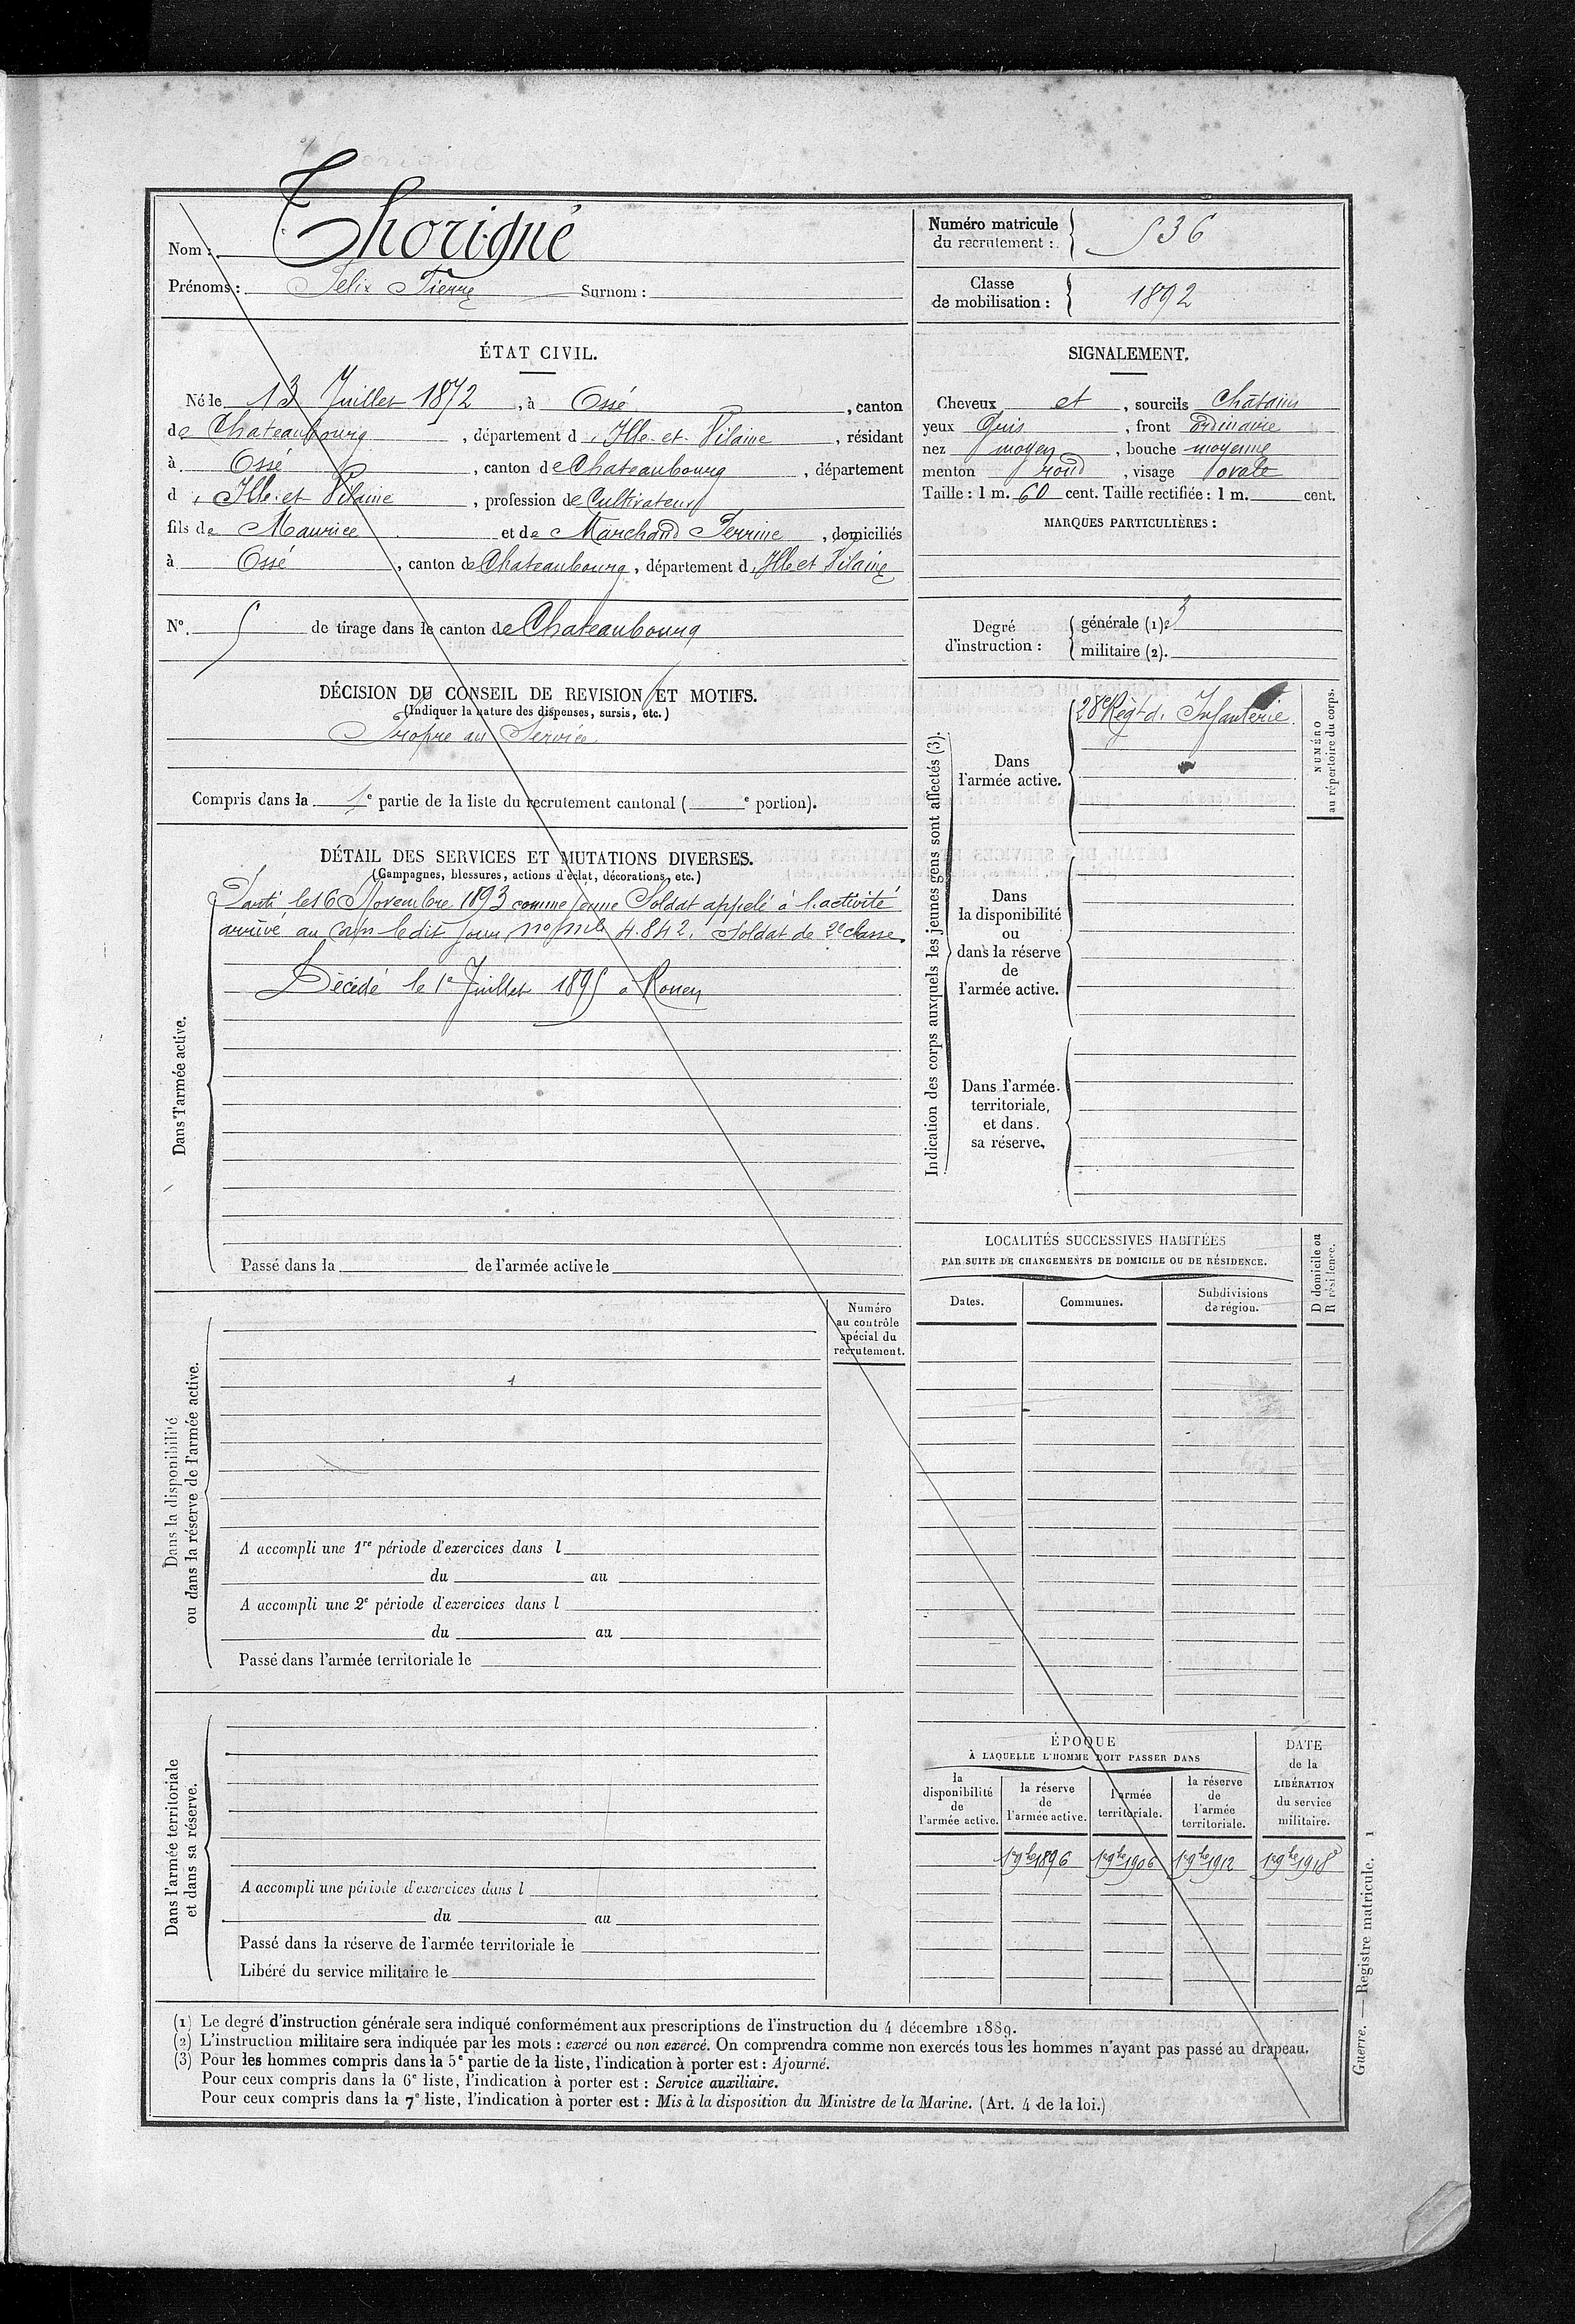 Nom : Thorigné
Prénoms : Félix Pierre Surnom :
Numéro matricule
du recrutement : 536
Classe
de mobilisation : 1892
ÉTAT CIVIL.
Né le 13 Juillet 1872, à Ossé, canton
de Chateaubourg, département d' Ille-et-Vilaine, résidant
à Ossé, canton de Chateaubourg, département
d' Ille-et-Vilaine, profession de Cultivateur
fils de Maurice et de Marchand Perrine, domiciliés
à Ossé, canton de Chateaubourg, département d' Ille et Vilaine
N° 5 de tirage dans le canton de Chateaubourg
DÉCISION DU CONSEIL DE REVISION ET MOTIFS.
(Indiquer la nature des dispenses, sursis, etc.)
Propre au Service
Compris dans la 1e partie de la liste du recrutement cantonal ( e portion).
SIGNALEMENT.
Cheveux et, sourcils Châtains
yeux Gris, front ordinaire
nez moyen, bouche moyenne
menton rond, visage ovale
Taille : 1 m. 60 cent. Taille rectifiée : 1 m. cent.
MARQUES PARTICULIÈRES :
Degré
d'instruction :
générale (1) 3
militaire (2).
DÉTAIL DES SERVICES ET MUTATIONS DIVERSES.
(Campagnes, blessures, actions d'éclat, décorations, etc.)
Dans l'armée active.
Parti le 16 Novembre 1893 comme jeune Soldat appelé à l'activité
arrivé au Corps le dit jour, no mle 4.842. Soldat de 2e classe.
Décédé le 1e Juillet 1895 à Rouen
Passé dans la de l'armée active le
Indication des corps auxquels les jeunes gens sont affectés (3).
Dans
l'armée active.
28e Régt d' Infanterie.
NUMÉRO
au répertoire du corps.
Dans
la disponibilité
ou
dans la réserve
de
l'armée active.
Dans l'armée
territoriale,
et dans
sa réserve.
LOCALITÉS SUCCESSIVES HABITÉES
PAR SUITE DE CHANGEMENTS DE DOMICILE OU DE RÉSIDENCE.
Dates.
Communes.
Subdivisions
de région.
D domicile ou
R résidence.
Dans la disponibilité
ou dans la réserve de l'armée active.
Numéro
au contrôle
spécial du
recrutement.
A accompli une 1re période d'exercices dans l
du au
A accompli une 2e période d'exercices dans l
du au
Passé dans l'armée territoriale le
Dans l'armée territoriale
et dans sa réserve.
A accompli une période d'exercices dans l
du au
Passé dans la réserve de l'armée territoriale le
Libéré du service militaire le
ÉPOQUE
À LAQUELLE L'HOMME DOIT PASSER DANS
la
disponibilité
de
l'armée active.
la réserve
de
l'armée active.
l'armée
territoriale.
la réserve
de
l'armée
territoriale.
DATE
de la
LIBÉRATION
du service
militaire.
1er 9bre 1896 1er 9bre 1906 1er 9bre 1912 1er 9bre 1918
(1) Le degré d'instruction générale sera indiqué conformément aux prescriptions de l'instruction du 4 décembre 1889.
(2) L'instruction militaire sera indiquée par les mots : exercé ou non exercé. On comprendra comme non exercés tous les hommes n'ayant pas passé au drapeau.
(3) Pour les hommes compris dans la 5e partie de la liste, l'indication à porter est : Ajourné.
Pour ceux compris dans la 6e liste, l'indication à porter est : Service auxiliaire.
Pour ceux compris dans la 7e liste, l'indication à porter est : Mis à la disposition du Ministre de la Marine. (Art. 4 de la loi.)
Guerre. — Registre matricule. 1